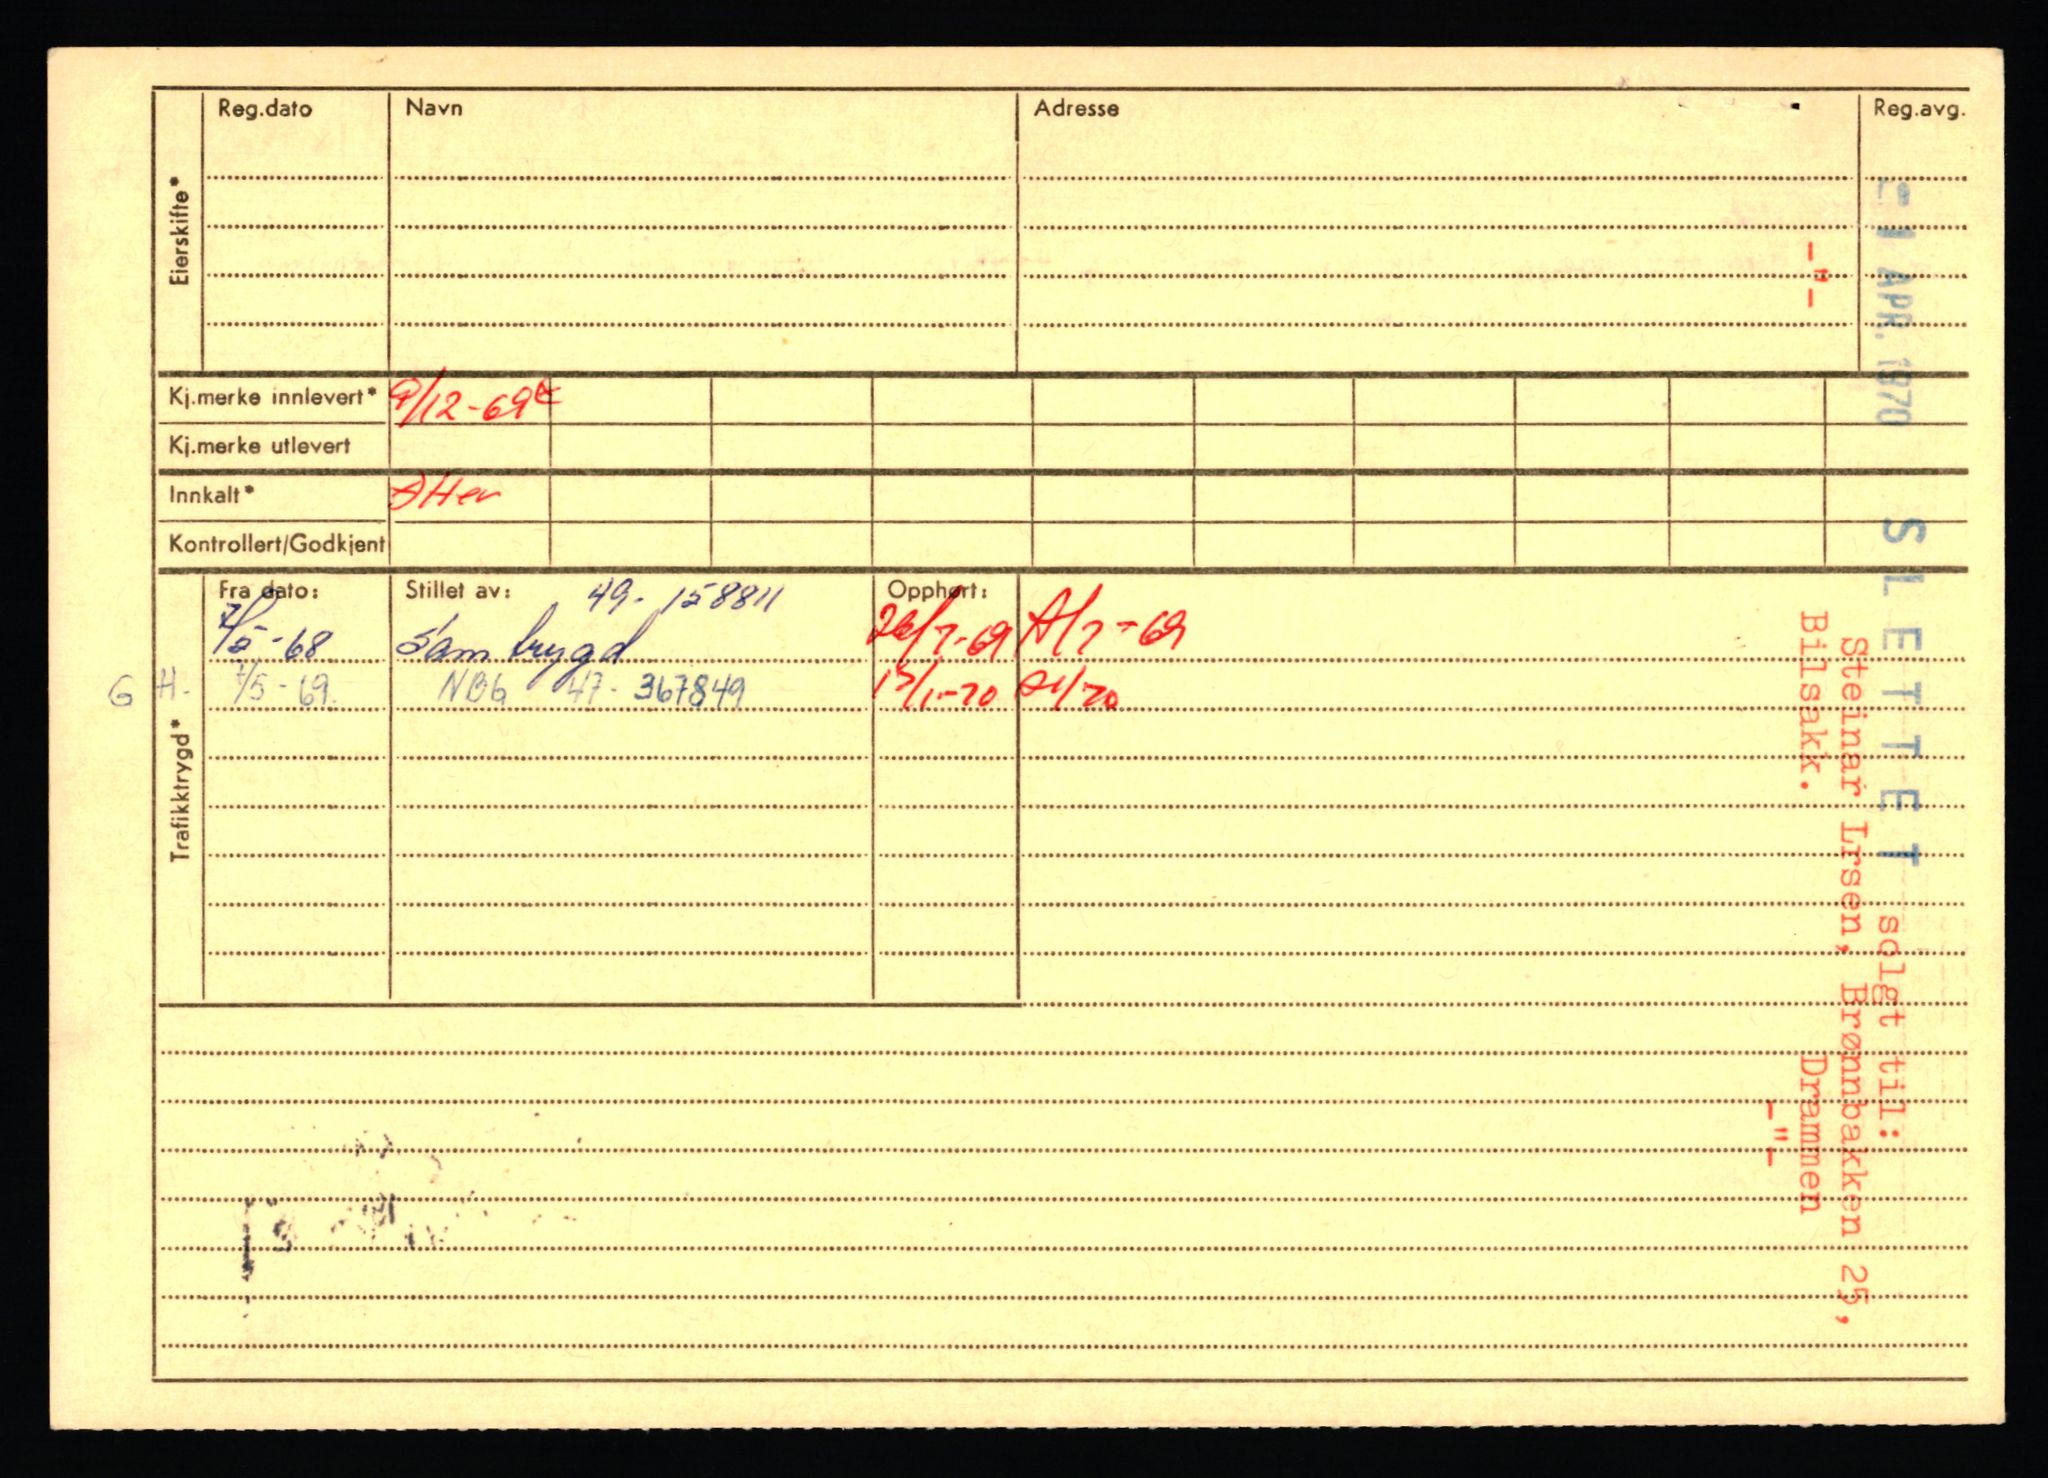 Reg.dato Navn Adresse Reg.avg.
Eierskifte*
Kj.merke innlevert* 9/12-69
Kj.merke utlevert
Innkalt*
Kontrollert/Godkjent
Trafikktrygd*
Fra dato: Stillet av: 49-158811 Opphørt:
7/5-68 Samtrygd 26/7-69
G H- 7/5-69. 47-367849
- 1 APR. 1970 SLETTET solgt til:
Steinar Lrsen, Brønnbakken 25,
-"- Bilsakk. Drammen
-"-